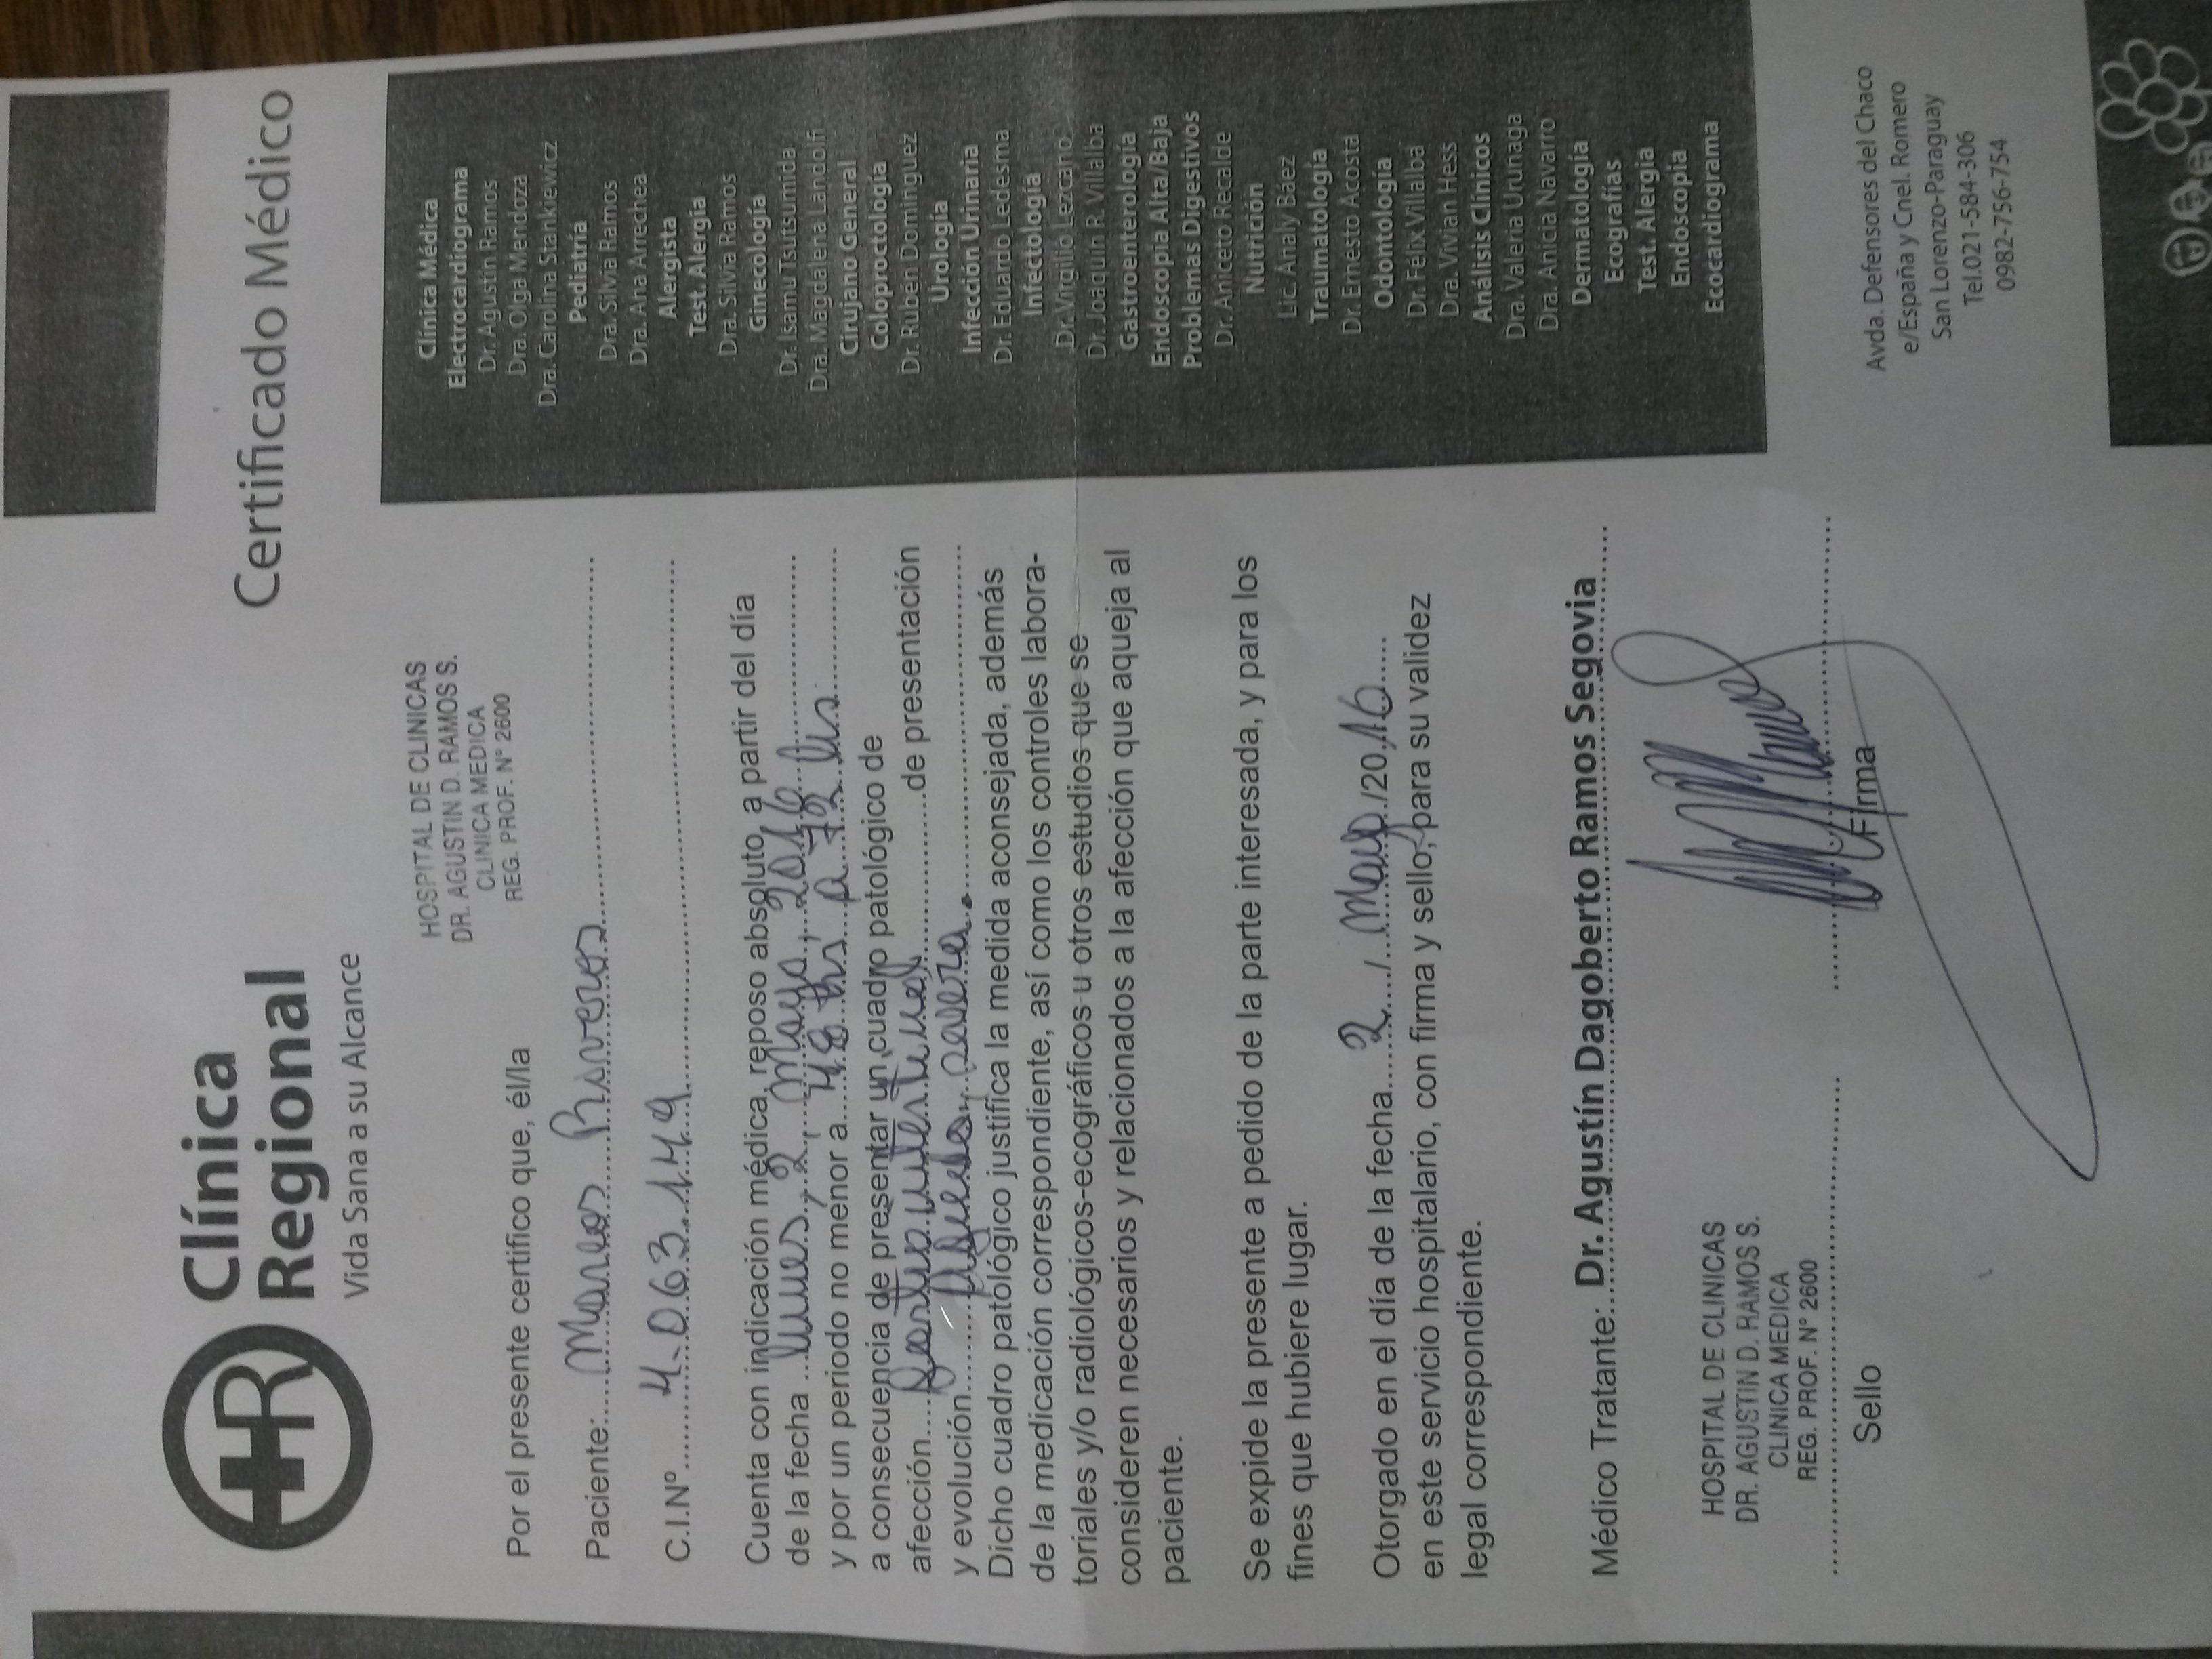 Clínica
Regional
Vida Sana a su Alcance
Certificado Médico
HOSPITAL DE CLINICAS
DR. AGUSTIN D. RAMOS S.
CLINICA MEDICA
REG. PROF. N° 2600
Por el presente certifico que, él/la
Paciente: Marcos Riveros
C.I.Nº 4.063.149
Cuenta con indicación médica, reposo absoluto, a partir del día
de la fecha lunes, 2, Mayo, 2016
y por un periodo no menor a 48 hs a 72 hs
a consecuencia de presentar un cuadro patológico de
afección de presentación
y evolución
Dicho cuadro patológico justifica la medida aconsejada, además
de la medicación correspondiente, así como los controles labora-
toriales y/o radiológicos-ecográficos u otros estudios que se
consideren necesarios y relacionados a la afección que aqueja al
paciente.
Se expide la presente a pedido de la parte interesada, y para los
fines que hubiere lugar.
Otorgado en el día de la fecha 2 / Mayo /2016
en este servicio hospitalario, con firma y sello, para su validez
legal correspondiente.
Médico Tratante: Dr. Agustín Dagoberto Ramos Segovia
HOSPITAL DE CLINICAS
DR. AGUSTIN D. RAMOS S.
CLINICA MEDICA
REG. PROF. N° 2600
Sello
Firma
Clínica Médica
Electrocardiograma
Dr. Agustín Ramos
Dra. Olga Mendoza
Dra. Carolina Stankiewicz
Pediatría
Dra. Silvia Ramos
Dra. Ana Arrechea
Alergista
Test. Alergia
Dra. Silvia Ramos
Ginecología
Dr. Isamu Tsutsumida
Dra. Magdalena Landolfi
Cirujano General
Coloproctología
Dr. Rubén Dominguez
Urología
Infección Urinaria
Dr. Eduardo Ledesma
Infectología
Dr. Virgilio Lezcano
Dr. Joaquín R. Villalba
Gastroenterología
Endoscopia Alta/Baja
Problemas Digestivos
Dr. Aniceto Recalde
Nutrición
Lic. Analy Báez
Traumatología
Dr. Ernesto Acosta
Odontología
Dr. Felix Villalba
Dra. Vivian Hess
Análisis Clínicos
Dra. Valeria Urunaga
Dra. Anicia Navarro
Dermatología
Ecografías
Test. Alergia
Endoscopia
Ecocardiograma
Avda. Defensores del Chaco
e/España y Cnel. Romero
San Lorenzo-Paraguay
Tel.021-584-306
0982-756-754